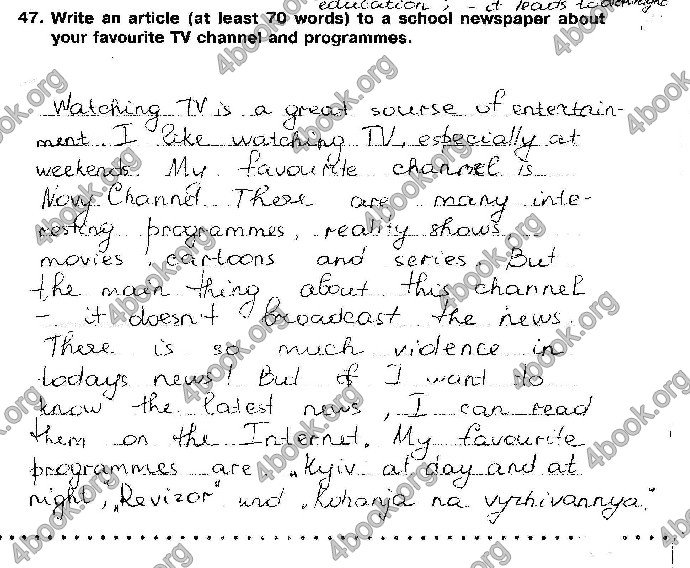 education; - it leads to overnight
47. Write an article (at least 70 words) to a school newspaper about
your favourite TV channel and programmes.
Watching TV is a great sourse of entertain-
ment. I like watching TV, especially at
weekends. My favourite channel is
Novy Channel. There are many inte-
resting programmes, reality shows,
movies, cartoons and series. But
the main thing about this channel
- it doesn't broadcast the news.
There is so much violence in
todays news! But if I want to
know the latest news, I can read
them on the Internet. My favourite
programmes are „Kyiv at day and at
night", „Revizor" und „Kohanja na vyzhivannya."
4book.org